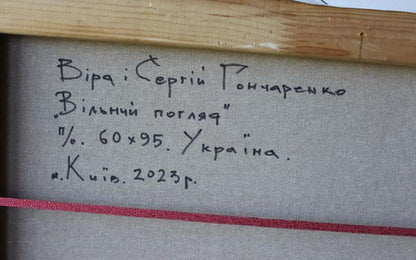 Віра і Сергій Гончаренко
„Вільний погляд"
п/о. 60х95. Україна.
м. Київ. 2023р.